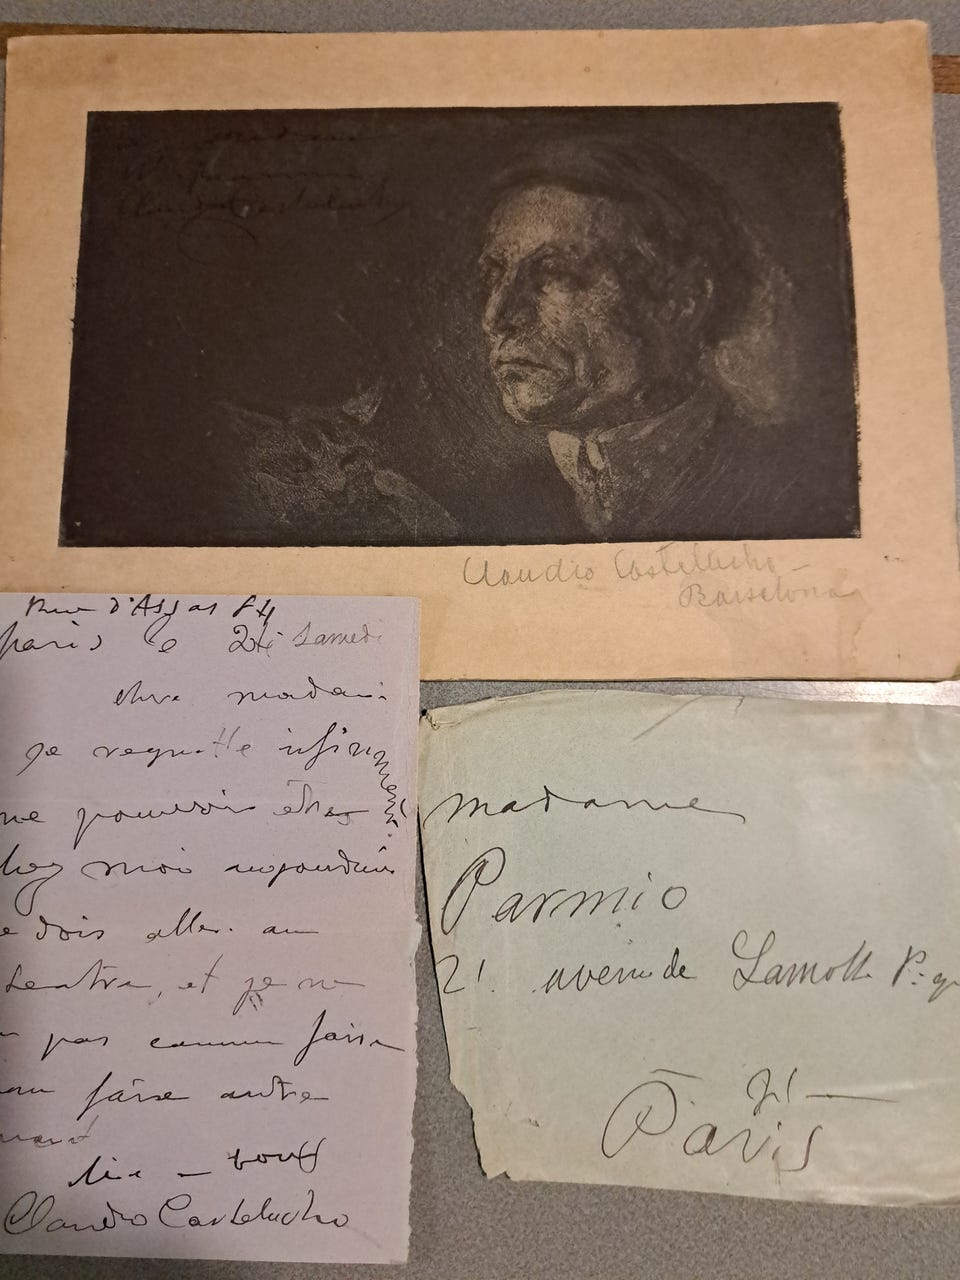 madame
Claudio Castelucho
Claudio Castelucho -
Barcelona
Rue d'Assas 84
paris le 24 Samedi
chere madame
je regrette infiniment
ne pouvoir être
chez moi aujourdui
je dois aller au
teatre, et je ne
pas comme faire
faire autre
bous
Claudio Castelucho
madame
Parmio
21. avenue de Lamotte P. q
21 —
Paris